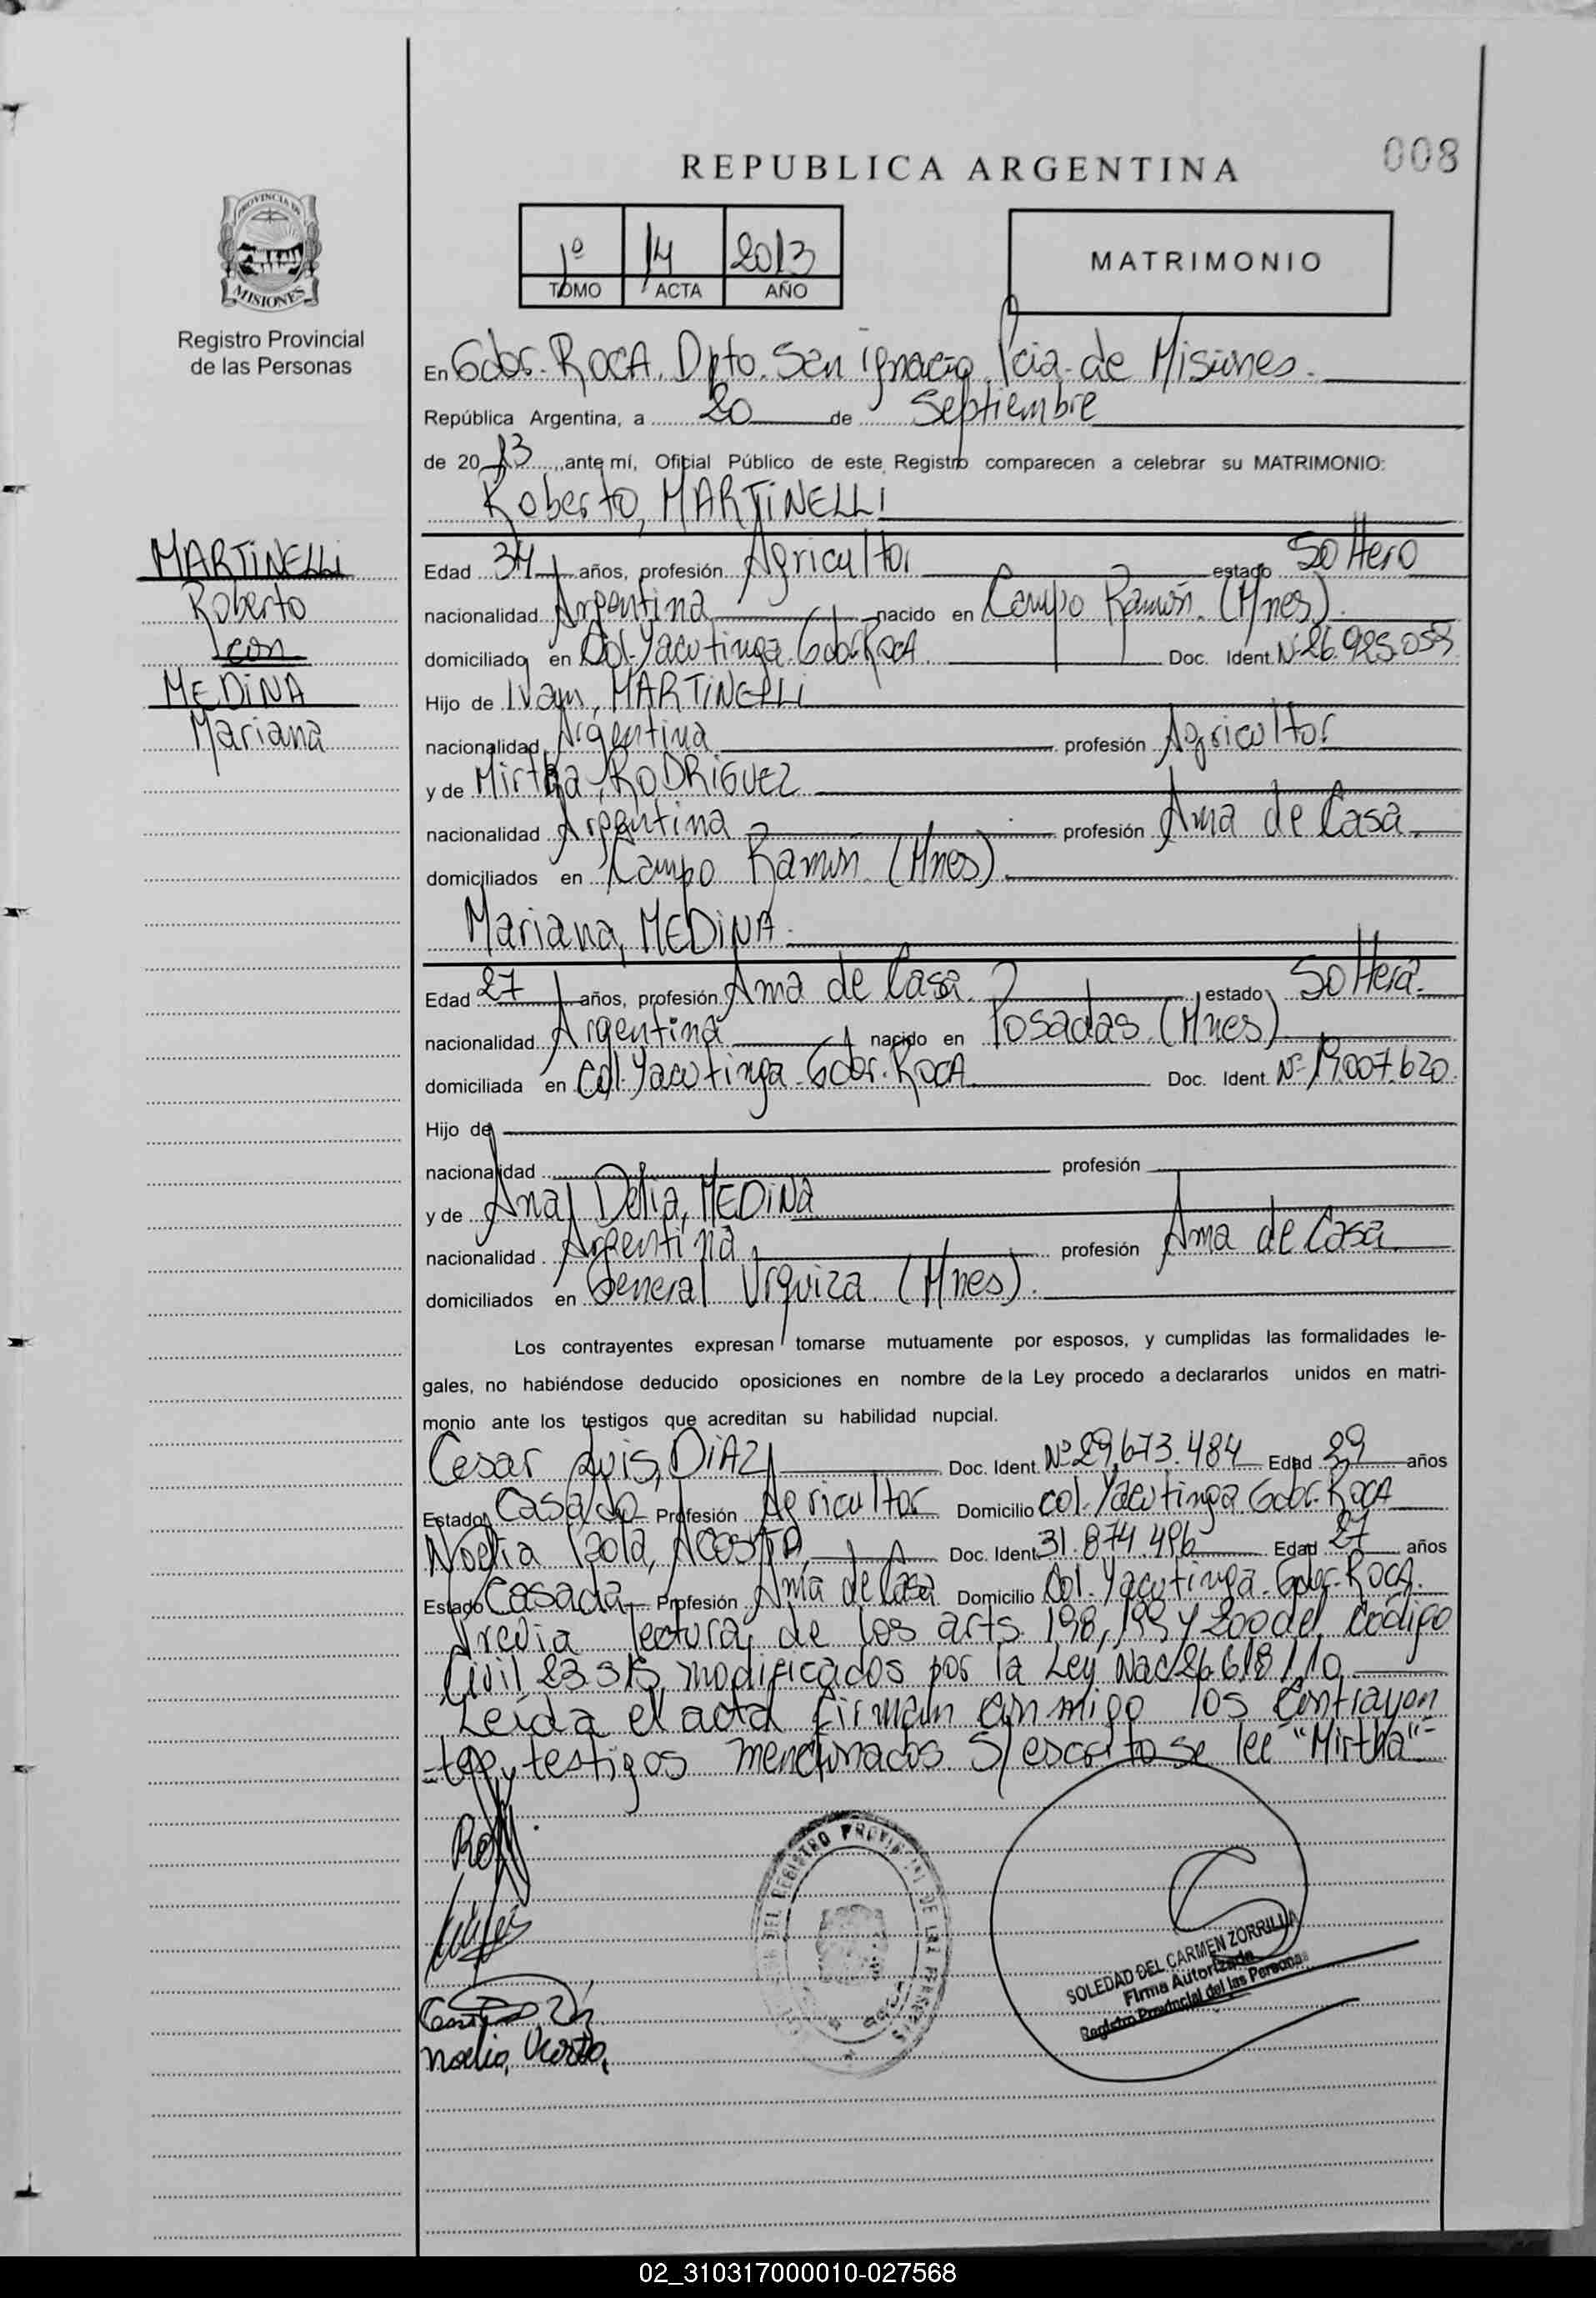 008
REPUBLICA ARGENTINA
PROVINCIA DE
MISIONES
Registro Provincial
de las Personas
1º 14 2013
TOMO ACTA AÑO
MATRIMONIO
En Gdor. ROCA. Dpto. San ignacio Pcia. de Misiones.
República Argentina, a 20 de Septiembre
de 2013, ante mí, Oficial Público de este Registro comparecen a celebrar su MATRIMONIO:
Roberto, MARTiNELLi
MARTiNELLi
Roberto
con
MEDiNA
Mariana
Edad 34 años, profesión Agricultor estado Soltero
nacionalidad Argentina nacido en Campo Ramón. (Mnes).
domiciliado en Col. Yacutinga. Gdor. ROCA Doc. Ident. Nº 26.925.053
Hijo de Ivan, MARTiNELLi
nacionalidad Argentina profesión Agricultor
y de Mirtha, RODRiGUEZ
nacionalidad Argentina profesión Ama de Casa.
domiciliados en Campo Ramón. (Mnes).
Mariana, MEDiNA.
Edad 27 años, profesión Ama de Casa. estado Soltera.
nacionalidad Argentina nacido en Posadas. (Mnes)
domiciliada en Col. Yacutinga. Gdor. ROCA Doc. Ident. Nº 19.007.620
Hijo de
nacionalidad profesión
y de Ana Delia, MEDiNA
nacionalidad Argentina profesión Ama de Casa.
domiciliados en General Urquiza. (Mnes).
Los contrayentes expresan tomarse mutuamente por esposos, y cumplidas las formalidades le-
gales, no habiéndose deducido oposiciones en nombre de la Ley procedo a declararlos unidos en matri-
monio ante los testigos que acreditan su habilidad nupcial.
Cesar Luis, DiAZ Doc. Ident. Nº 29.673.484 Edad 29 años
Estado Casado Profesión Agricultor Domicilio Col. Yacutinga. Gdor. ROCA
Noelia Isola, ACOSTA, Doc. Ident. 31.874.496 Edad 27 años
Estado Casada Profesión Ama de Casa Domicilio Col. Yacutinga. Gdor. ROCA.
Previa lectura de los arts. 198, 199 y 200 del Código
Civil 23.515, modificados por la Ley Nac. 26.618/10.
Leída el acta firman conmigo los Contrayen
-tes y testigos mencionados. S/escrito se lee "Mirtha"=
DEL REGISTRO PROVINCIAL DE LAS PERSONAS
ROCA
SOLEDAD DEL CARMEN ZORRILLA
Firma Autorizada
Registro Provincial del las Personas
Noelia, Acosta,
02_310317000010-027568